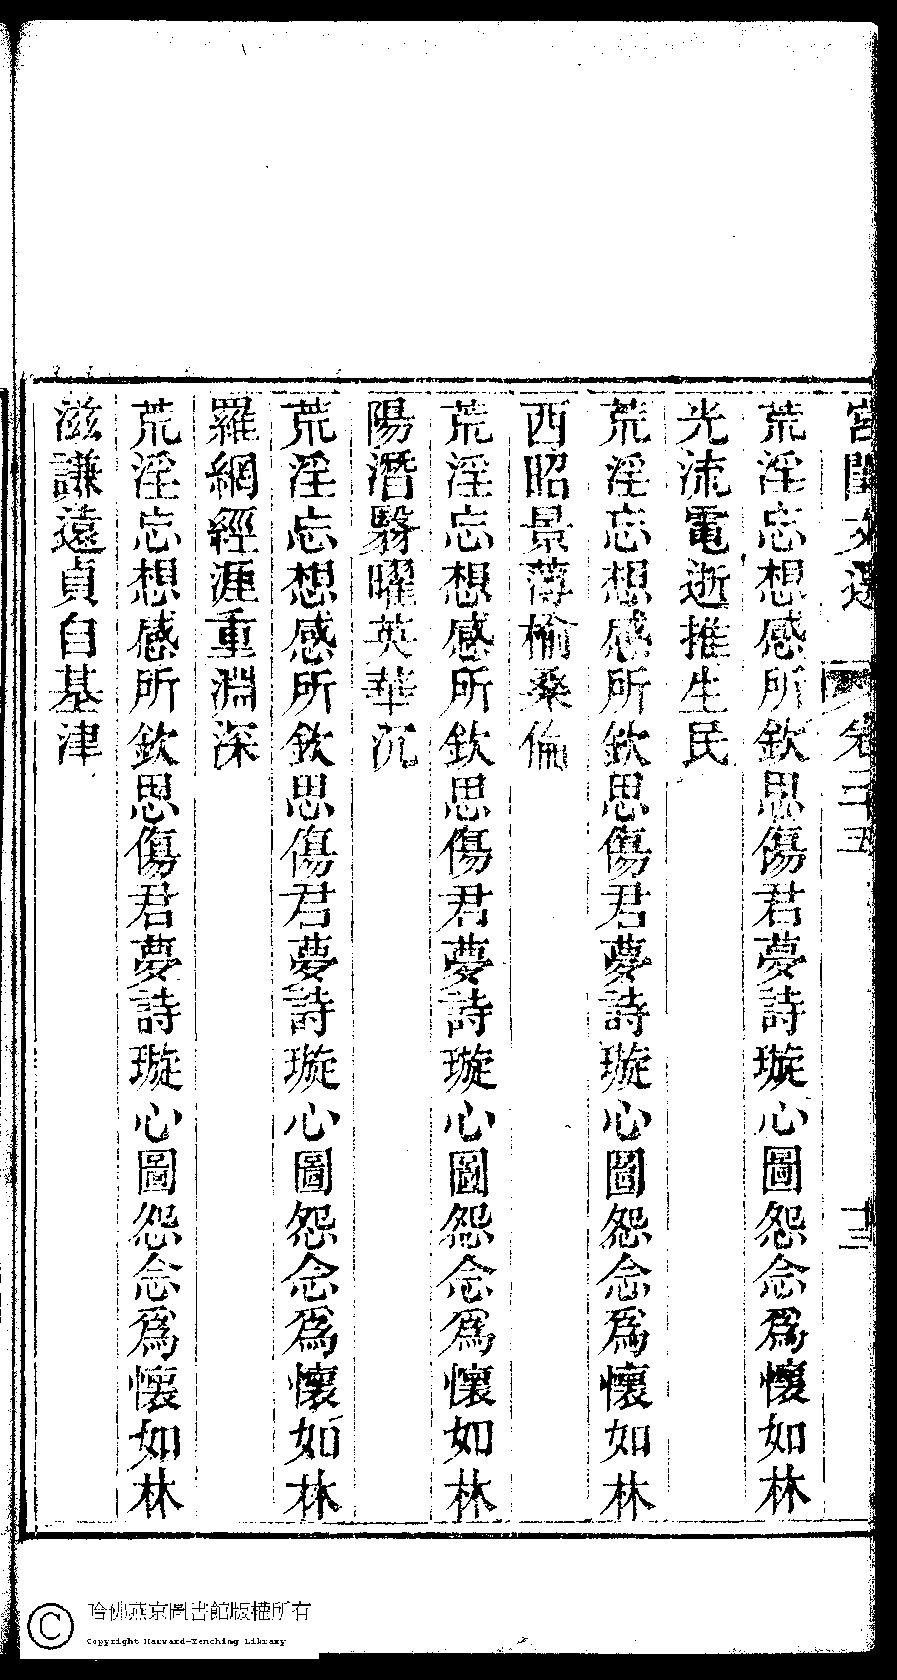 宮閨文選 卷二十五 十三
荒淫忘想感所欽思傷君夢詩璇心圖怨念為懷如林
光流電逝推生民
荒淫忘想感所欽思傷君夢詩璇心圖怨念為懷如林
西昭景薄榆桑倫
荒淫忘想感所欽思傷君夢詩璇心圖怨念為懷如林
陽潛翳曜英華沉
荒淫忘想感所欽思傷君夢詩璇心圖怨念為懷如林
羅網經涯重淵深
荒淫忘想感所欽思傷君夢詩璇心圖怨念為懷如林
滋謙遠貞自基津
哈佛燕京圖書館版權所有
Copyright Harvard-Yenching Library